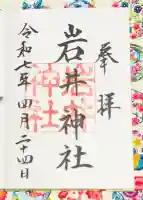 奉拝
岩井神社
令和七年四月二十四日